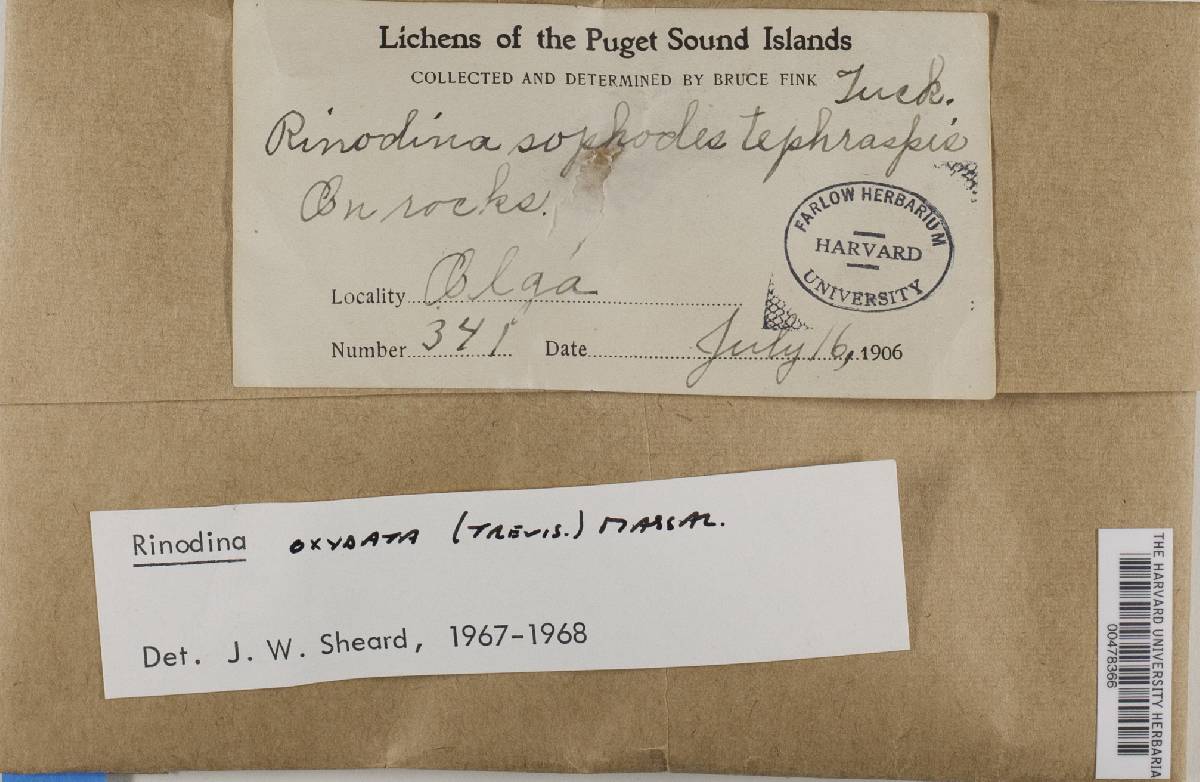 Lichens of the Puget Sound Islands
COLLECTED AND DETERMINED BY BRUCE FINK
Tuck.
Rinodina sophodes tephraspis
On rocks.
FARLOW HERBARIUM
HARVARD
UNIVERSITY
Locality Olga
Number 341 Date July 16, 1906
Rinodina OXYDATA (TREVIS.) MASSAL.
Det. J. W. Sheard, 1967-1968
THE HARVARD UNIVERSITY HERBARIA
00478366